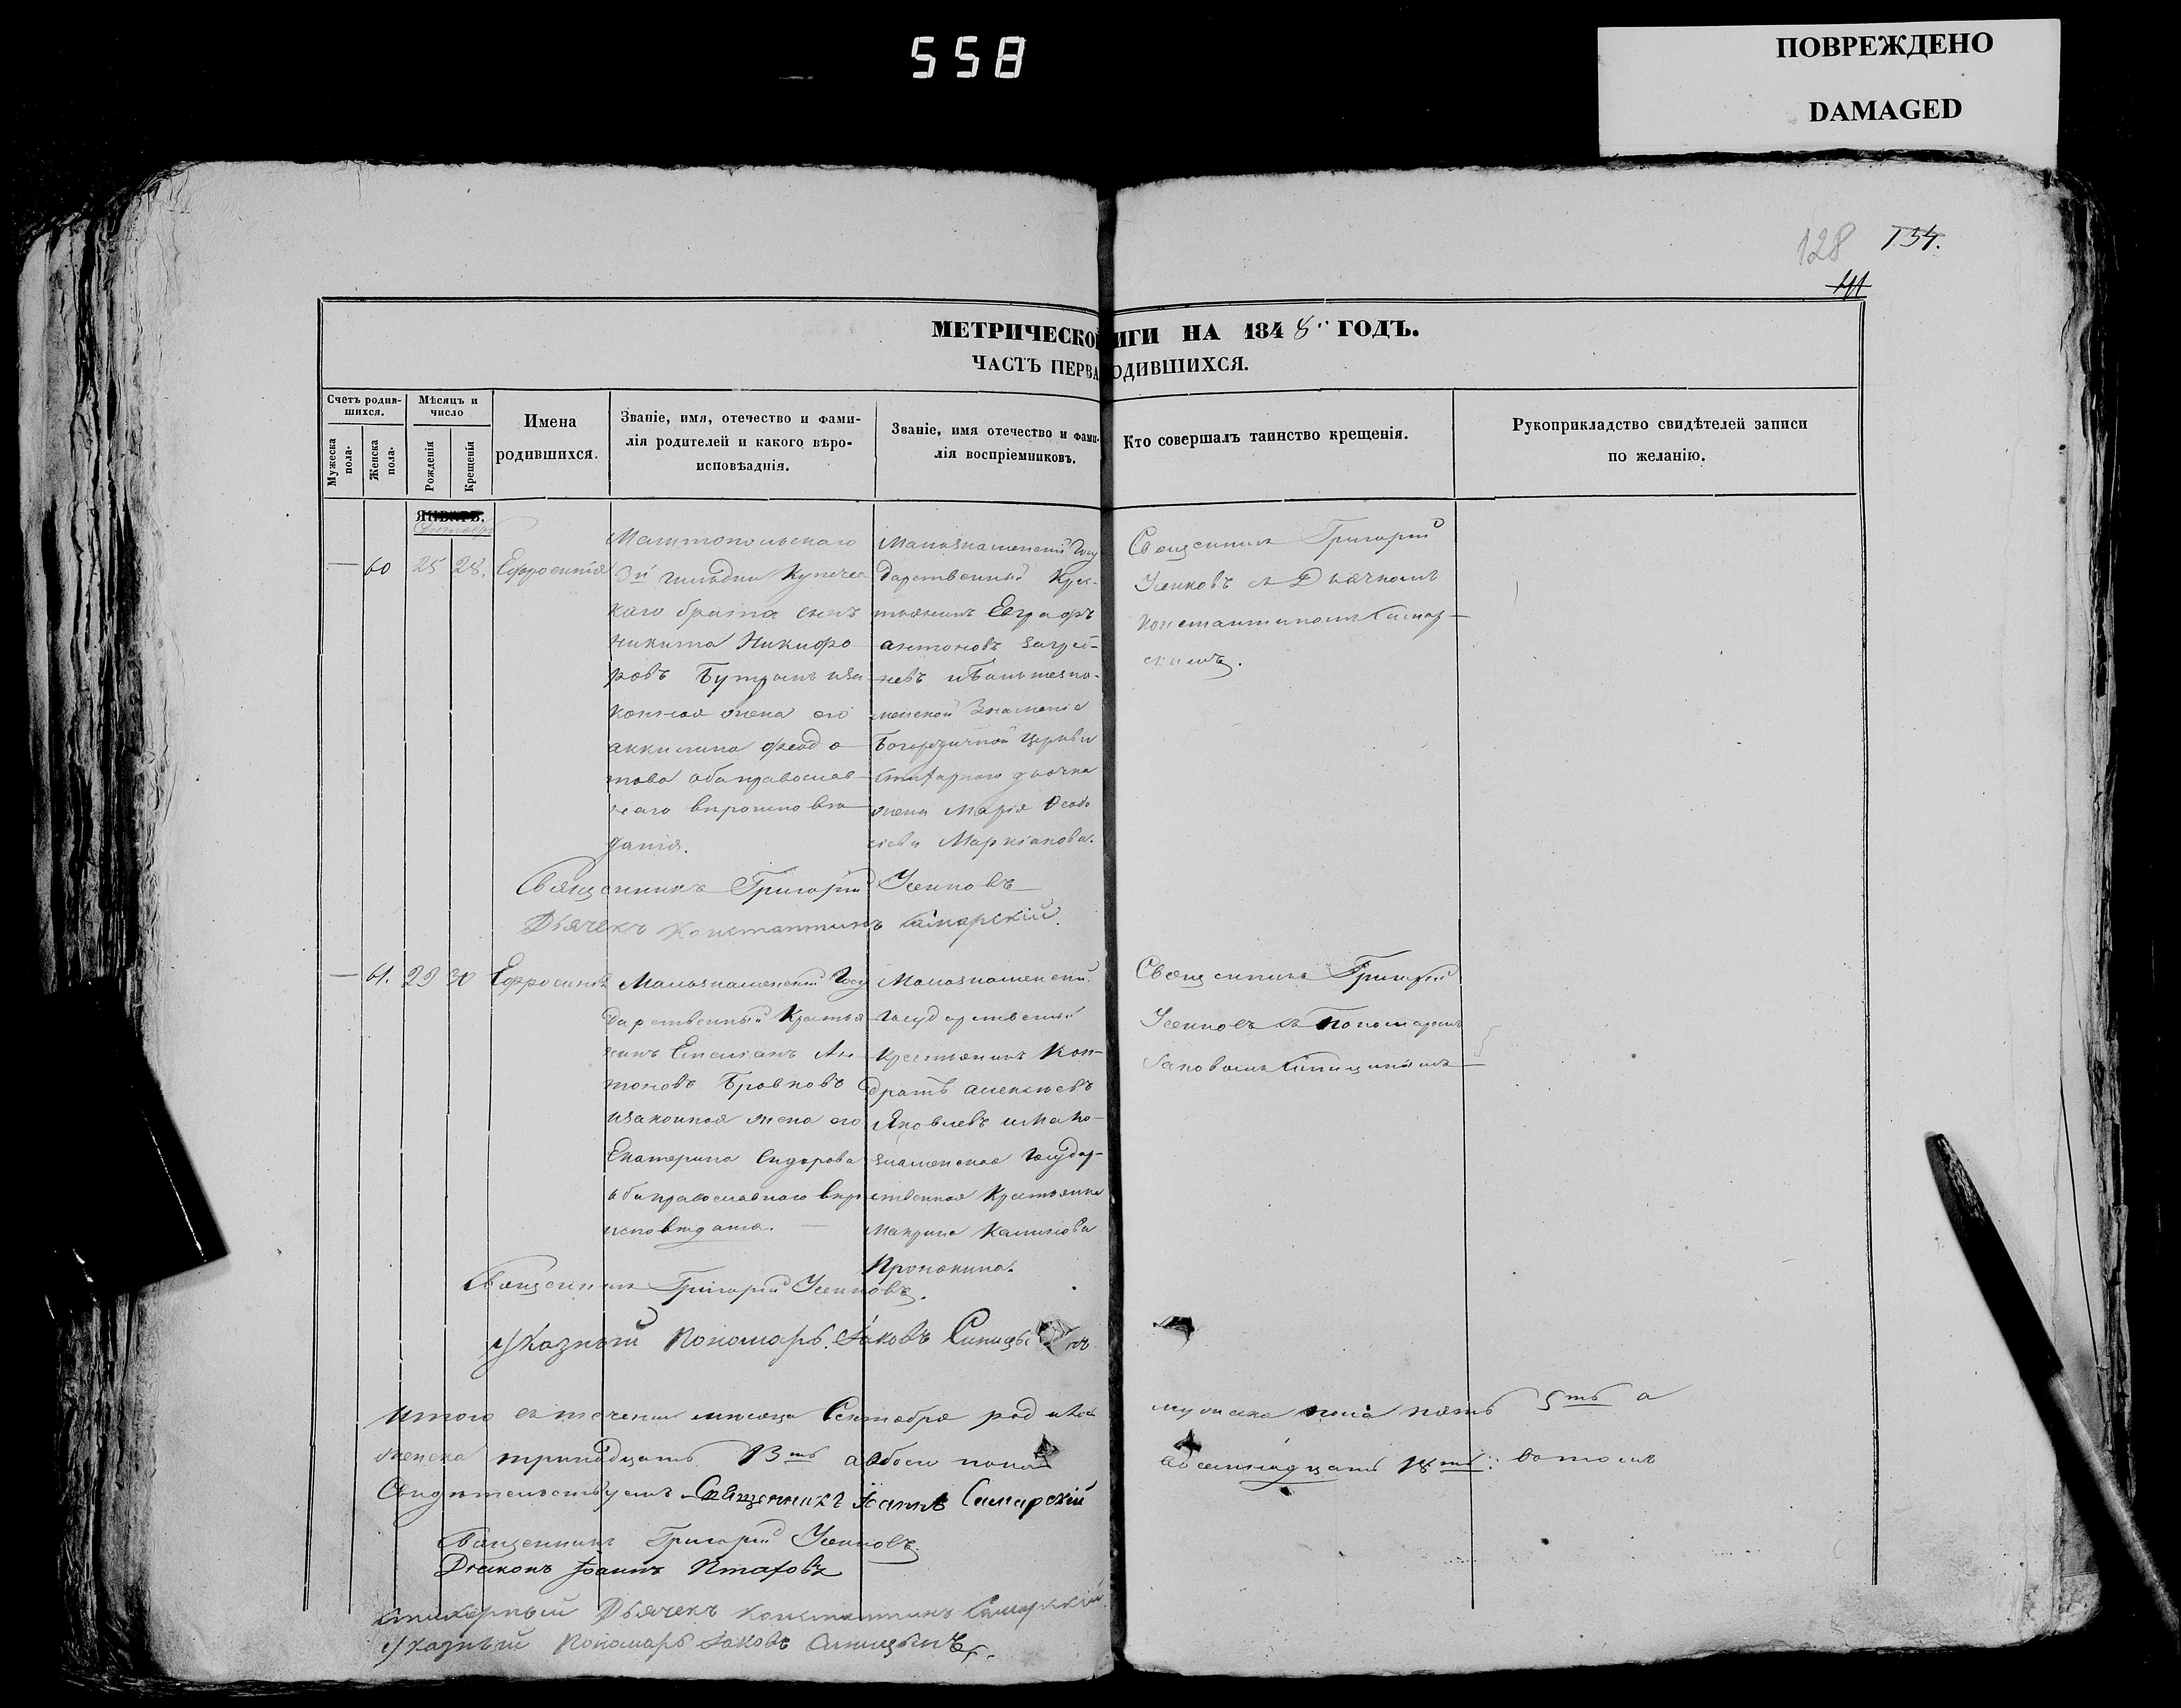 558
ПОВРЕЖДЕНО
DAMAGED
128 134.
141
МЕТРИЧЕСКОЙ ИГИ НА 1848 ГОДЪ.
ЧАСТЬ ПЕРВА ОДИВШИХСЯ.
Счетъ родив-
шихся.
Мужеска
пола.
Женска
пола.
Мѣсяцъ и
число
Рожденія
Крещенія
Имена
родившихся.
Званіе, имя, отечество и фами-
лія родителей и какого вѣро-
исповѣаднія.
Званіе, имя отечество и фами-
лія воспріемниковъ.
Кто совершалъ таинство крещенія.
Рукоприкладство свидѣтелей записи
по желанію.
ЯНВАРЬ.
— 60 25 28. Ефросинія
3й гильдии купечес
каго брата сынъ
Никита Никифо
ровъ иза
конная жена его
Акилина Федо
това оба православ
наго вѣроисповѣ
данія.
Малознаменскій Госу
дарственный Крес-
тьянинъ Евграфъ
Антоновъ
менской Знаменія
Богородичной Церкви
стихарнаго дьячка
жена Марія Феодо
сіева Маркіанова.
Священникъ Григорій
Усенковъ съ Дьячкомъ
Константиномъ Самар-
скимъ.
Священникъ Григорій Усенковъ
Дьячекъ Константинъ Самарскій.
— 61. 29 30 Ефросинія
Малознаменскій Госу
дарственный Крестья
нинъ Емелианъ Ан-
тоновъ Бровковъ
изаконная жена его
Екатерина Сидорова
оба православнаго вѣро
исповѣданія.
Малознаменскій
Государственный
Крестьянинъ Кон-
дратъ Алексѣевъ
Яковлевъ и Мало-
знаменская Государ-
ственная Крестьянка
Макрина Калинова
Священникъ Григорій
Усенковъ съ Пономаремъ
Іаковомъ Синицинымъ
Священникъ Григорій Усенковъ.
Указный Пономарь Іаковъ Синицы нъ
Итого въ теченіи мѣсяца Сентября родилось
мужеска пола пять 5ть а
женска тринадцать 13ть а обоего пола
восемнадцать 18ть: въ томъ
Свидѣтельствуемъ Священникъ Іоаннъ Самарскій
Священникъ Григорій Усенковъ
Діаконъ Іоаннъ Птаховъ
Стихарный Дьячекъ Константинъ Самарскій.
Указный Пономарь Іаковъ Синицынъ.